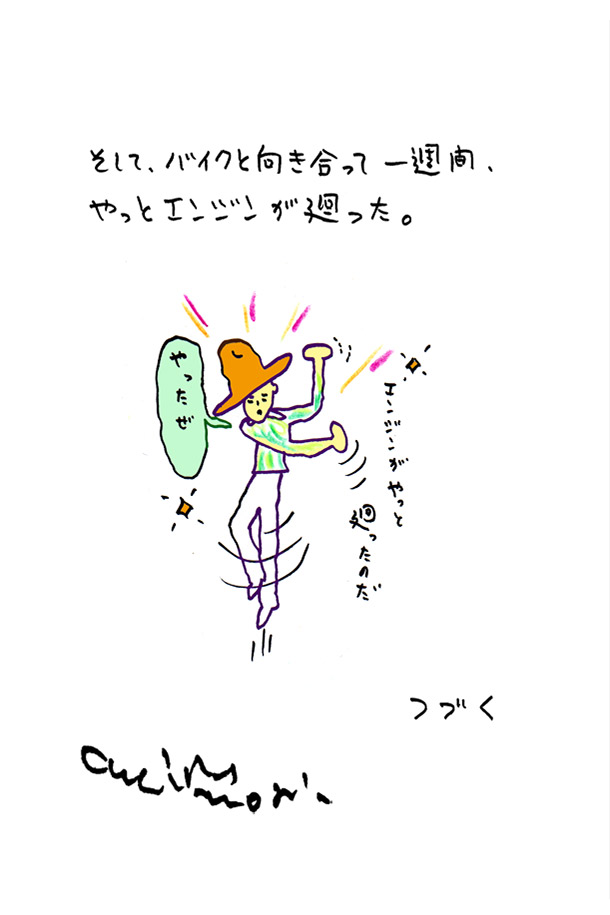 そして、バイクと向き合って一週間、
やっとエンジンが廻った。
やったぜ
エンジンがやっと
廻ったのだ
つづく